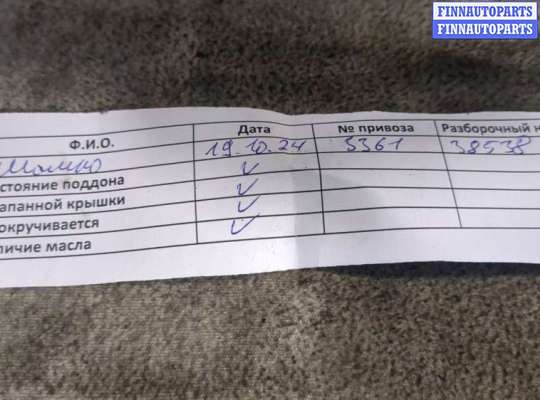 FINNAUTOPARTS
FINNAUTOPARTS
Ф.И.О. Дата № привоза Разборочный н
19.10.24 5361 38538
стояние поддона
апанной крышки
окручивается
личие масла